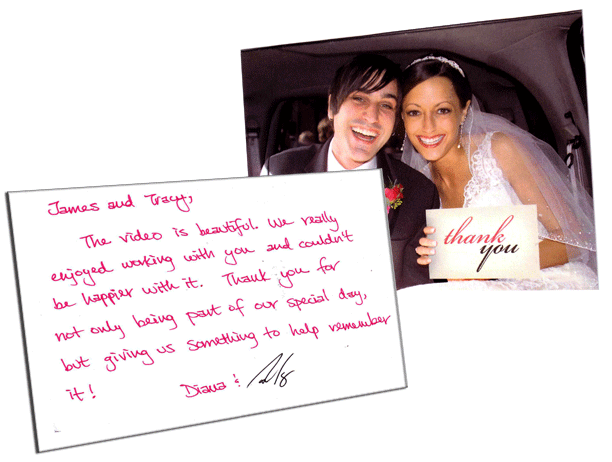 thank
you
James and Tracy,
The video is beautiful. We really
enjoyed working with you and couldn't
be happier with it. Thank you for
not only being part of our special day,
but giving us something to help remember
it!
Diana &